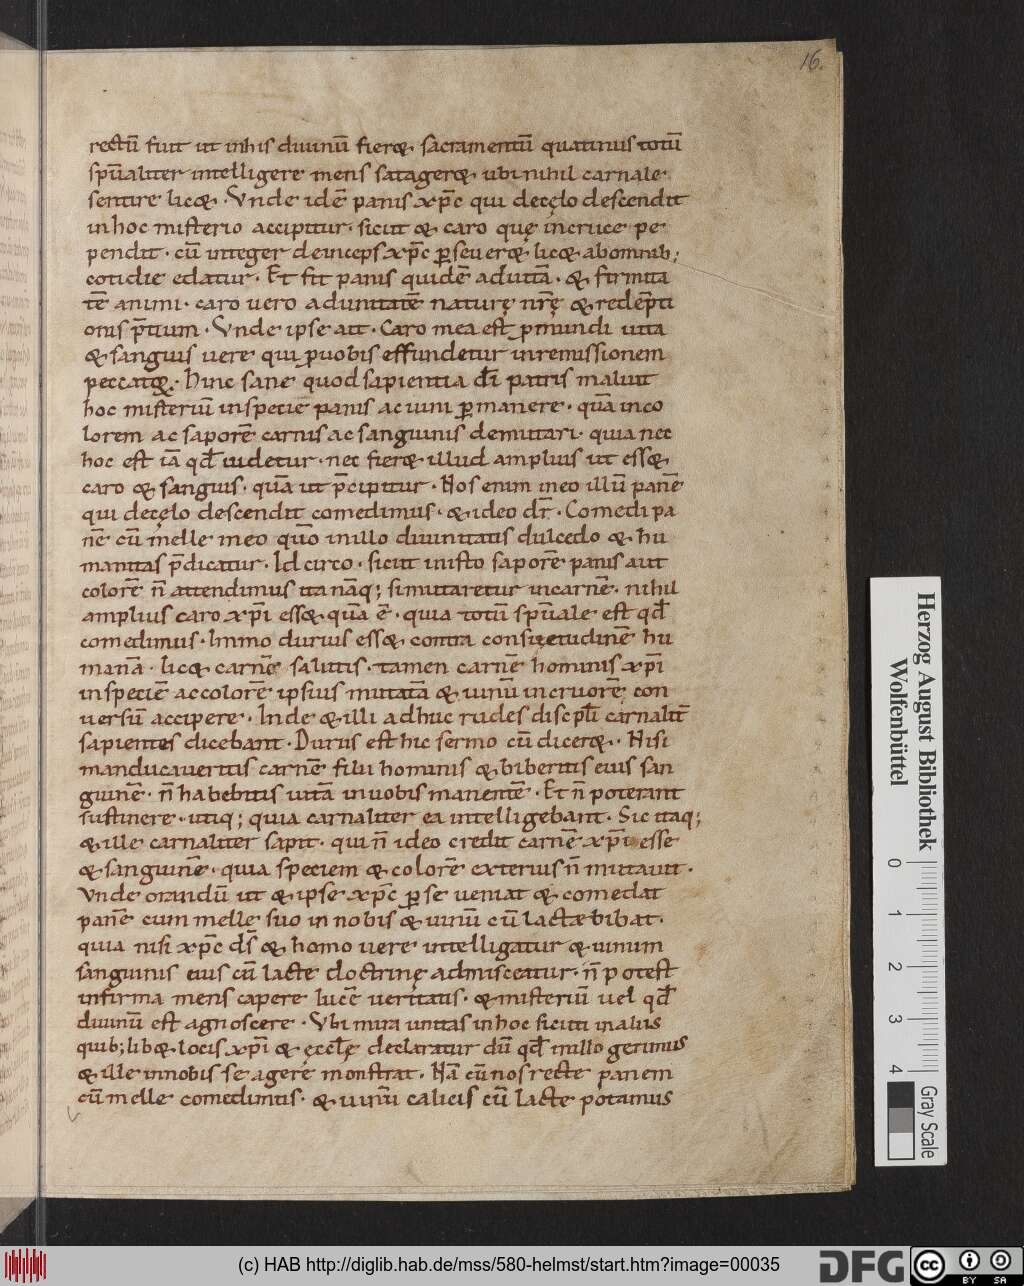 16.
rectū fuit ut inhis diuinū fieret sacramentū quatinus totū
spūaliter intelligere mens satageret ubi nihil carnale
sentire licet. Vnde idē panis xp̄c qui decęlo descendit
inhoc misterio accipitur. sicut & caro quę incruce pe
pendit. cū integer deinceps xp̄c p̱seueret licet abomnib;
cotidie edatur. Et fit panis quidē aduitā. & firmita
tē animi. caro uero adunitatē naturę nr̄ę & redēpti
onis p̄tium. Vnde ipse ait. Caro mea est p̱mundi uita
& sanguis uere qui p̱uobis effundetur inremissionem
peccatoꝝ. Hinc sane quod sapientia dī patris maluit
hoc misteriū inspecie panis ac uini p̱manere. quā inco
lorem ac saporē carnis ac sanguinis demutari. quia nec
hoc est iā qd̄ uidetur. nec fieret illud amplius ut esset
caro & sanguis. quā ut p̄cipitur. Nos enim ineo illū panē
qui decęlo descendit comedimus. & ideo dr̄. Comedi pa
nē cū melle meo quō inillo diuinitatis dulcedo & hu
manitas p̄dicatur. Id circo. sicut inisto saporē panis aut
colorē n̄ attendimus ita nāq; simutaretur incarnē. nihil
amplius caro xp̄i esset. quā ē. quia totū spūale est qd̄
comedimus. Immo durius esset contra consuetudinē hu
manā. licet carnē salutis. tamen carnē hominis xp̄i
inspeciē accolorē ipsius mutatā & uinū incruorē con
uersū accipere. Inde & illi adhuc rudes discipl̄i carnalit̄
sapientes dicebant. Durus est hic sermo cū diceret. Nisi
manducaueritis carnē filii hominis & biberitis eius san
guinē. n̄ habebitis uitā inuobis manentē. Et n̄ poterant
sustinere. utiq; quia carnaliter ea intelligebant. Sic itaq;
& ille carnaliter sapit. qui n̄ ideo credit carnē xp̄i esse
& sanguinē. quia speciem & colorē exterius n̄ mutauit.
Vnde orandū ut & ipse xp̄c p̱se ueniat & comedat
panē cum melle suo in nobis & uinū cū lacte bibat.
quia nisi xp̄c ds̄ & homo uere intelligatur & uinum
sanguinis eius cū lacte doctrinę admisceatur. n̄ potest
infirma mens capere lucē ueritatis. & misteriū uel qd̄
diuinū est agnoscere. Vbi mira unitas inhoc sicuti inaliis
quib; libet locis xp̄i & ęccl̄ę declaratur dū qd̄ inillo gerimus
& ille innobis se agere monstrat. Nā cū nos recte panem
cū melle comedimus. & uinū calicis cū lacte potamus
Herzog August Bibliothek
Wolfenbüttel
0 1 2 3 4
Gray Scale
(c) HAB http://diglib.hab.de/mss/580-helmst/start.htm?image=00035
DFG
cc BY SA